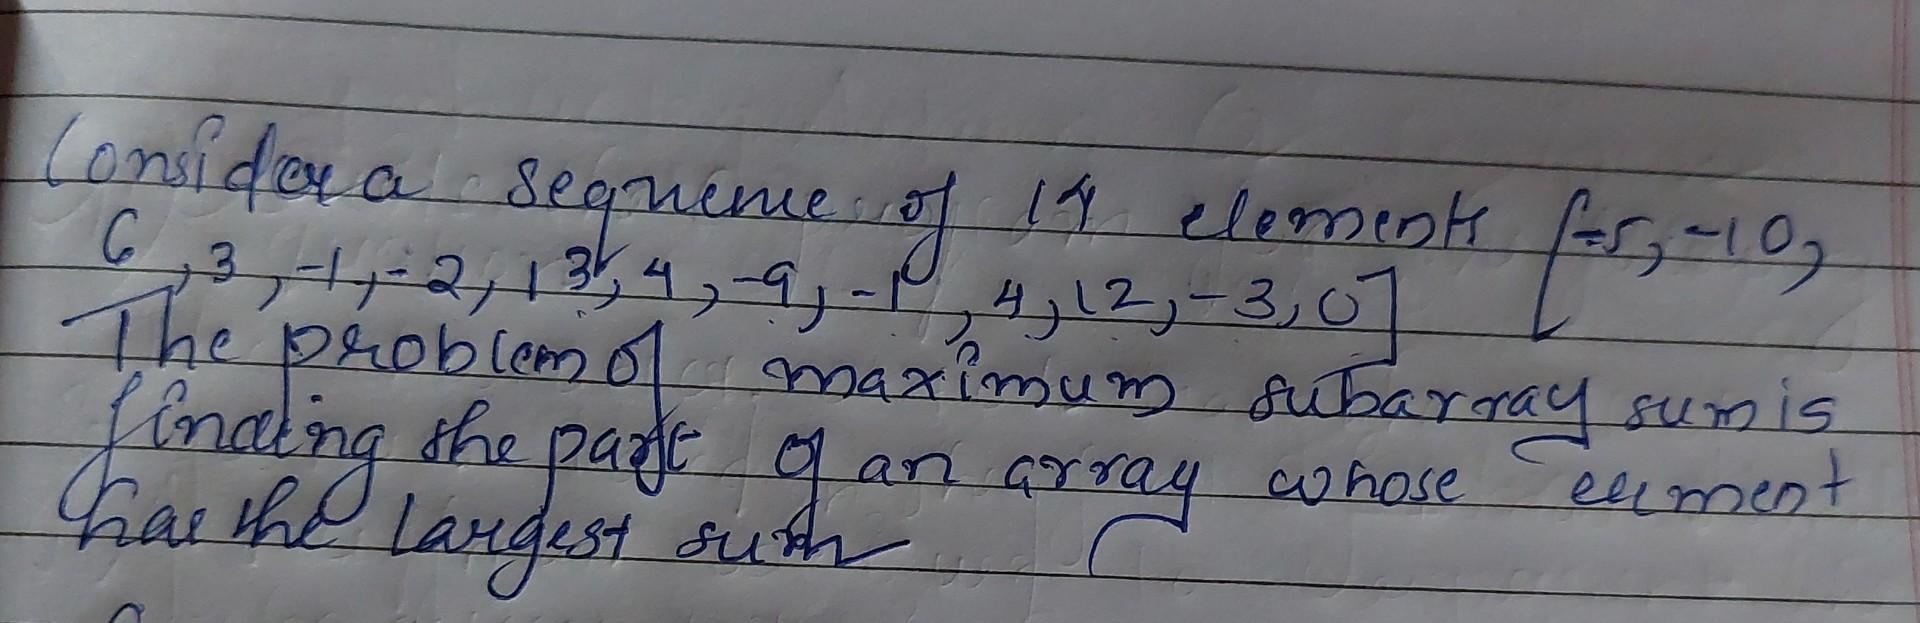 Consider a sequence of 14 elements [-5, -10,
6, 3, -1, -2, 13, 4, -9, -1, 4, 12, -3, 0]
The problem of maximum subarray sum is
finding the part of an array whose eement
has the largest sum